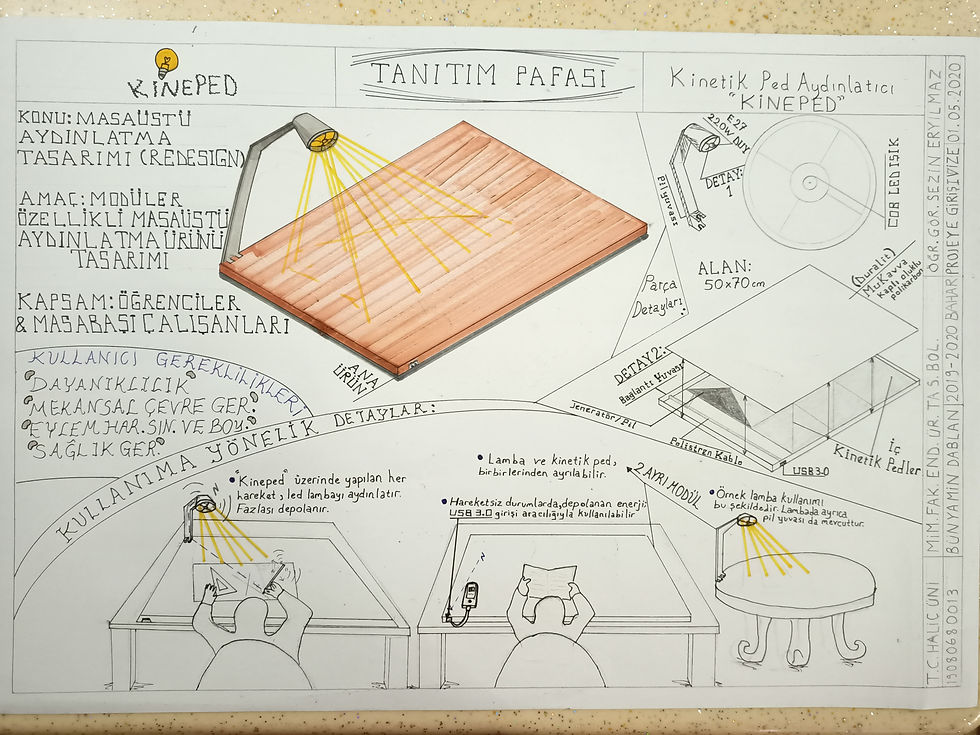 KİNEPED
TANITIM PAFASI
Kinetik Ped Aydınlatıcı
"KİNEPED"
KONU: MASAÜSTÜ
AYDINLATMA
TASARIMI (REDESIGN)
AMAÇ: MODÜLER
ÖZELLİKLİ MASAÜSTÜ
AYDINLATMA ÜRÜNÜ
TASARIMI
KAPSAM: ÖĞRENCİLER
& MASABAŞI ÇALIŞANLARI
KULLANICI GEREKLİLİKLERİ
DAYANIKLILIK
MEKANSAL ÇEVRE GER.
EYLEM, HAR. SIN. VE BOY.
SAĞLIK GER.
ANA
ÜRÜN
E27
220W DUY
DETAY:
1
Pil yuvası
COB LED IŞIK
Parça
Detayları:
ALAN:
50x70cm
(Duralit)
Mukavva
kaplı oluklu
polikarbon
DETAY2:
Bağlantı Yuvası
Jeneratör/Pil
Polistren Kablo
USB3.0
İç
Kinetik Pedler
KULLANIMA YÖNELİK DETAYLAR:
"Kineped" üzerinde yapılan her
hareket, led lambayı aydınlatır.
Fazlası depolanır.
Lamba ve kinetik ped,
birbirlerinden ayrılabilir.
2 AYRI MODÜL
Hareketsiz durumlarda, depolanan enerji;
USB 3.0 girişi aracılığıyla kullanılabilir
Örnek lamba kullanımı
bu şekildedir. Lambada ayrıca
pil yuvası da mevcuttur.
T.C. HALİÇ ÜNİ MİM. FAK. END. ÜR. TAS. BÖL. ÖĞR. GÖR. SEZİN ERYILMAZ
19080680013 BÜNYAMİN DABLAN 2019-2020 BAHAR PROJEYE GİRİŞ VİZE 01.05.2020